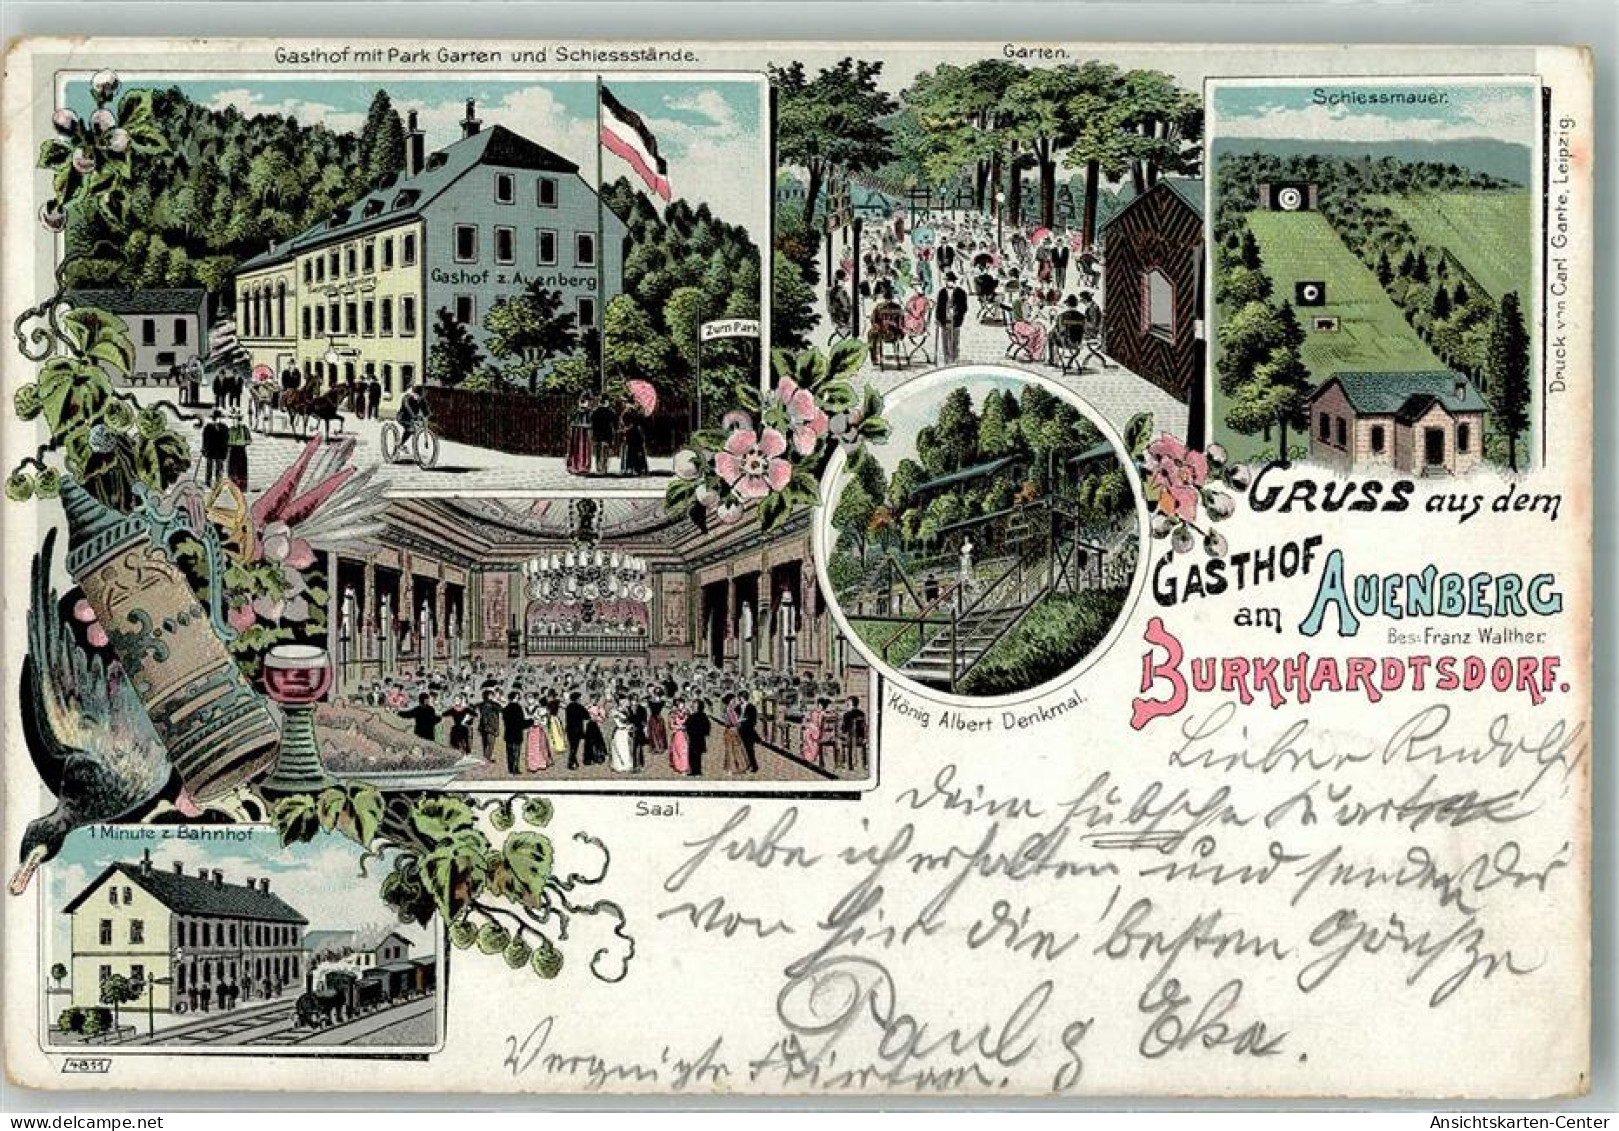 Gasthof mit Park Garten und Schiessstände.
Garten.
Schiessmauer.
Druck von Carl Garte, Leipzig.
Gashof z. Auenberg
Zum Park
GRUSS aus dem
GASTHOF
am AUENBERG
Bes: Franz Walther.
BURKHARDTSDORF.
König Albert Denkmal.
Saal.
1 Minute z. Bahnhof
4811
Lieber Rudolf!
Deine hübsche Karte
habe ich erhalten, und senden Dir
von hier die besten
Paul &
Vergnügte
Ansichtskarten-Center